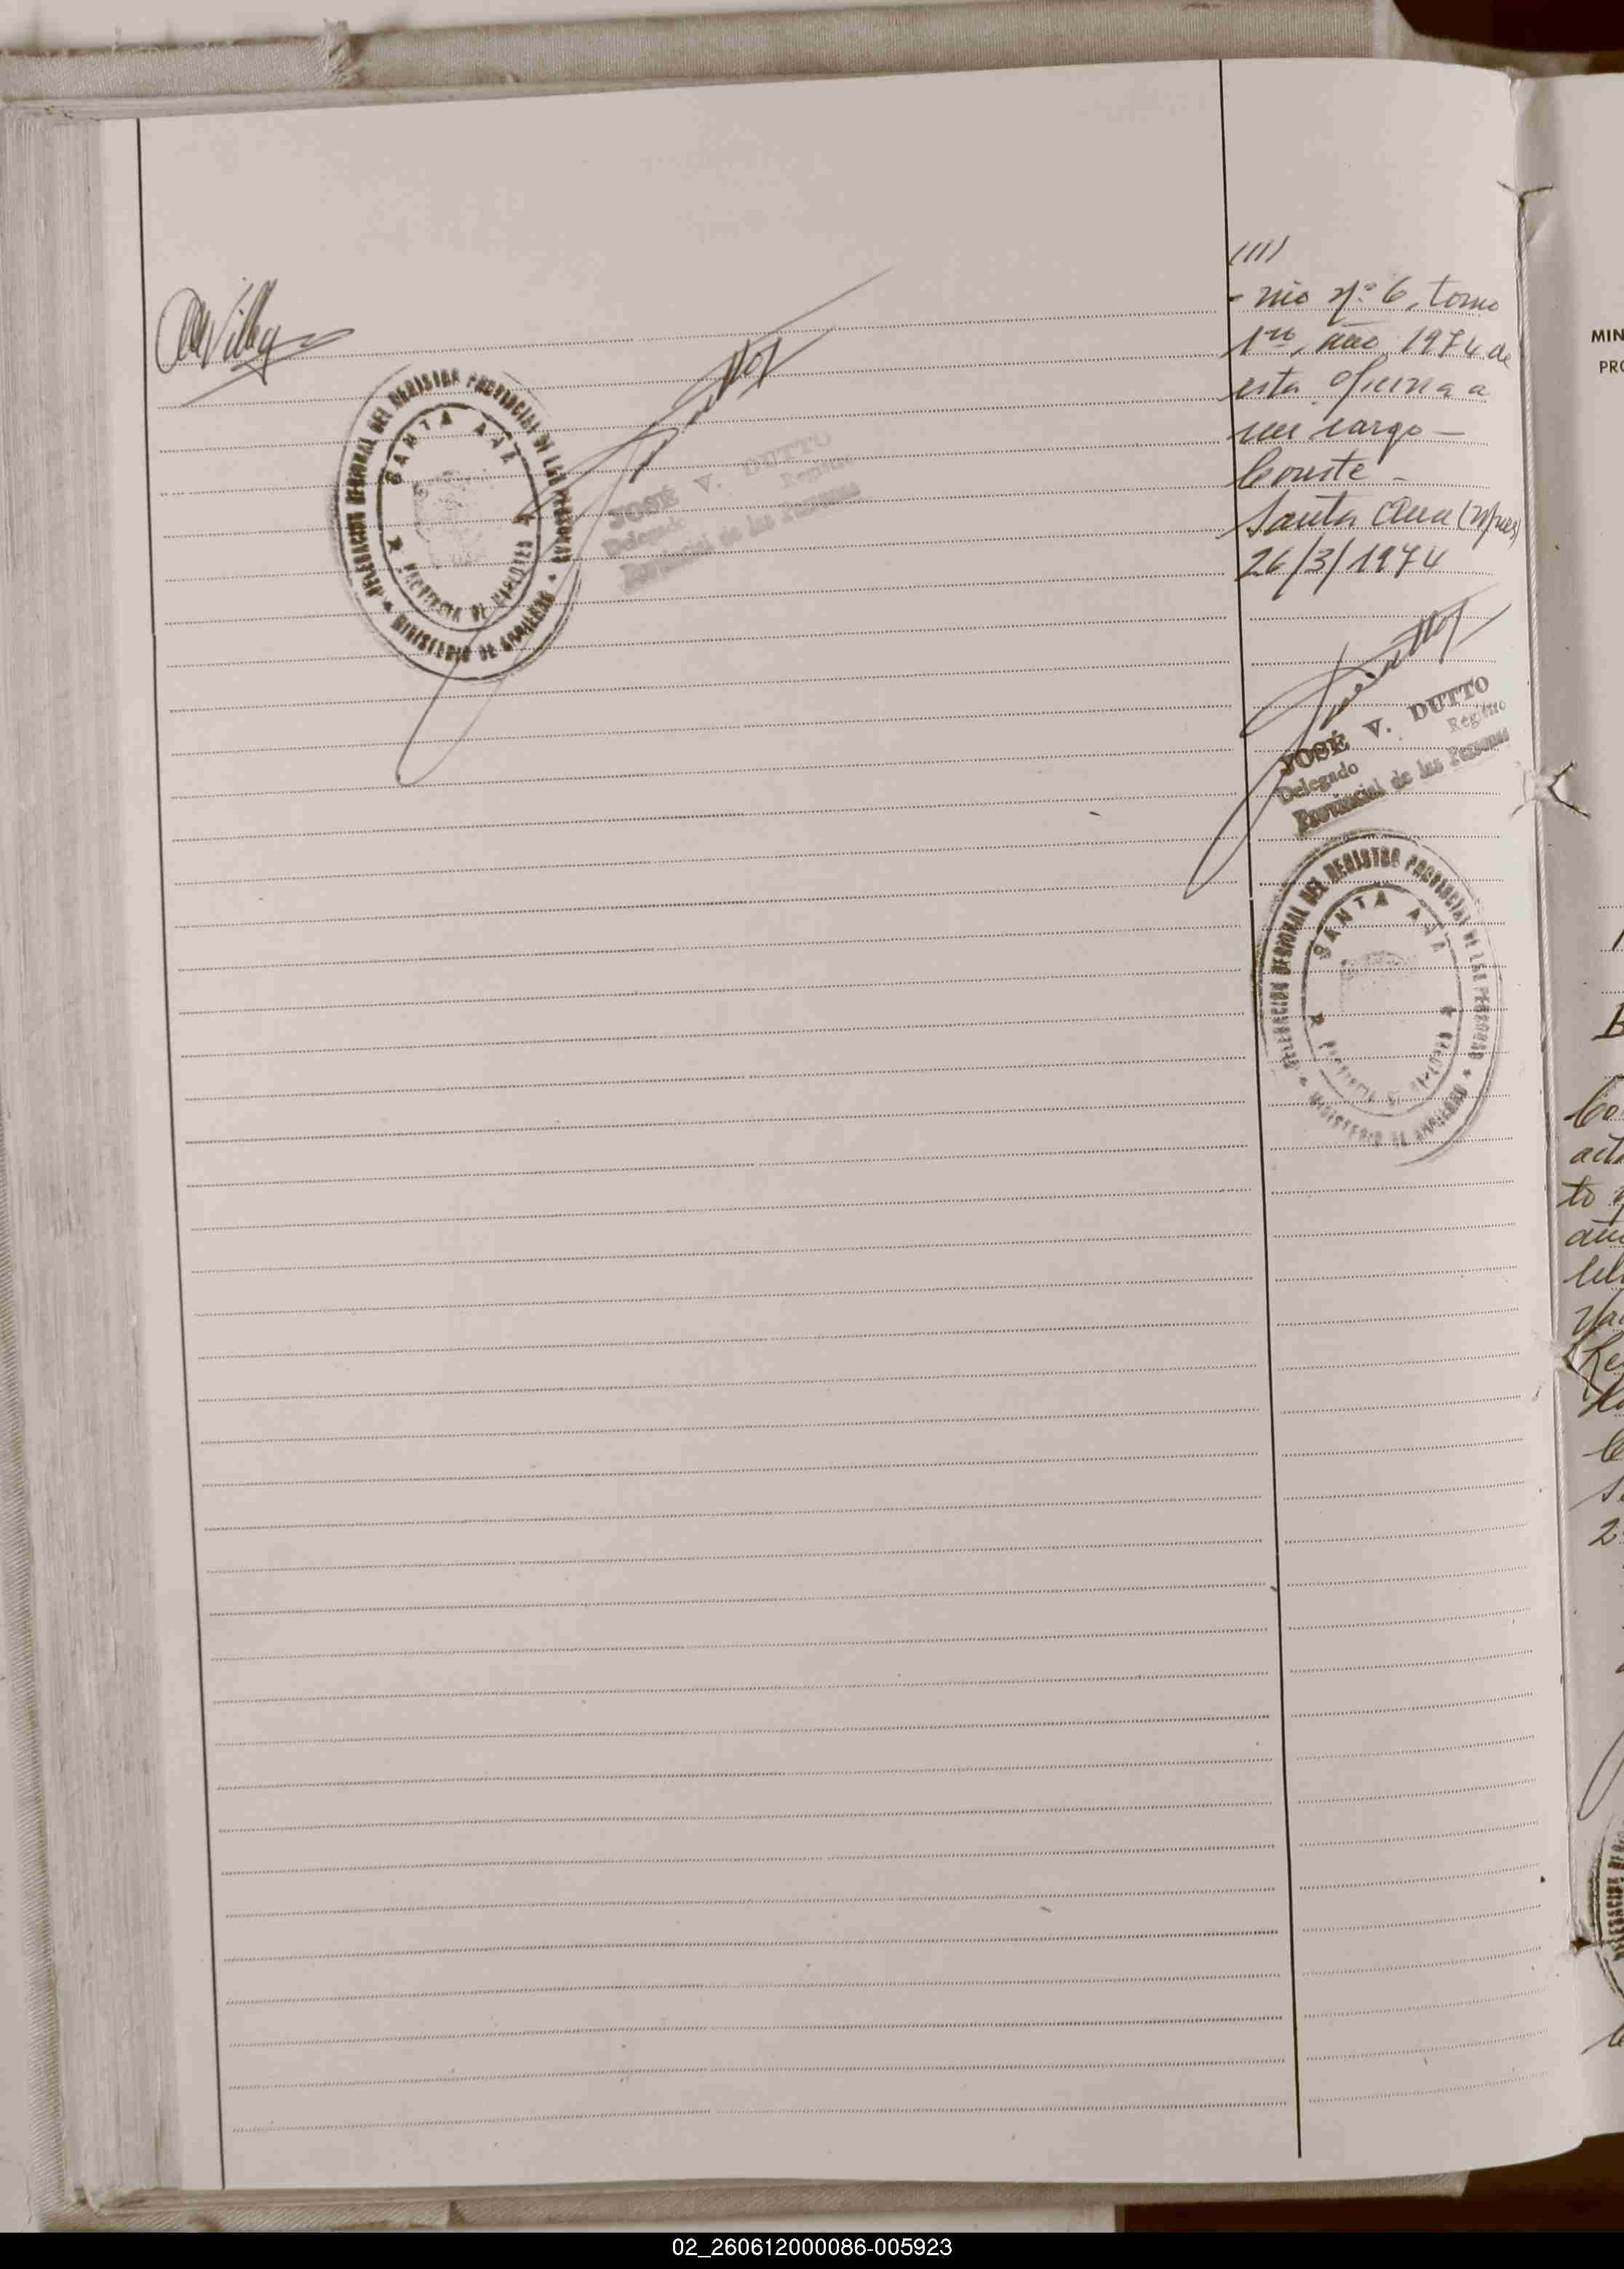 ////
- nio nº 6, tomo
1ro, año 1974 de
esta oficina a
mi cargo —
Conste -
Santa Ana (Mnes)
26/3/1974
JOSÉ V. DUTTO
Delegado Registro
Provincial de las Personas
DELEGACION REGIONAL DEL REGISTRO PROVINCIAL DE LAS PERSONAS
SANTA ANA
PROVINCIA DE MISIONES
MINISTERIO DE GOBIERNO
JOSÉ V. DUTTO
Delegado Registro
Provincial de las Personas
DELEGACION REGIONAL DEL REGISTRO PROVINCIAL DE LAS PERSONAS
SANTA ANA
PROVINCIA DE MISIONES
MINISTERIO DE GOBIERNO
MIN
PRO
02_260612000086-005923